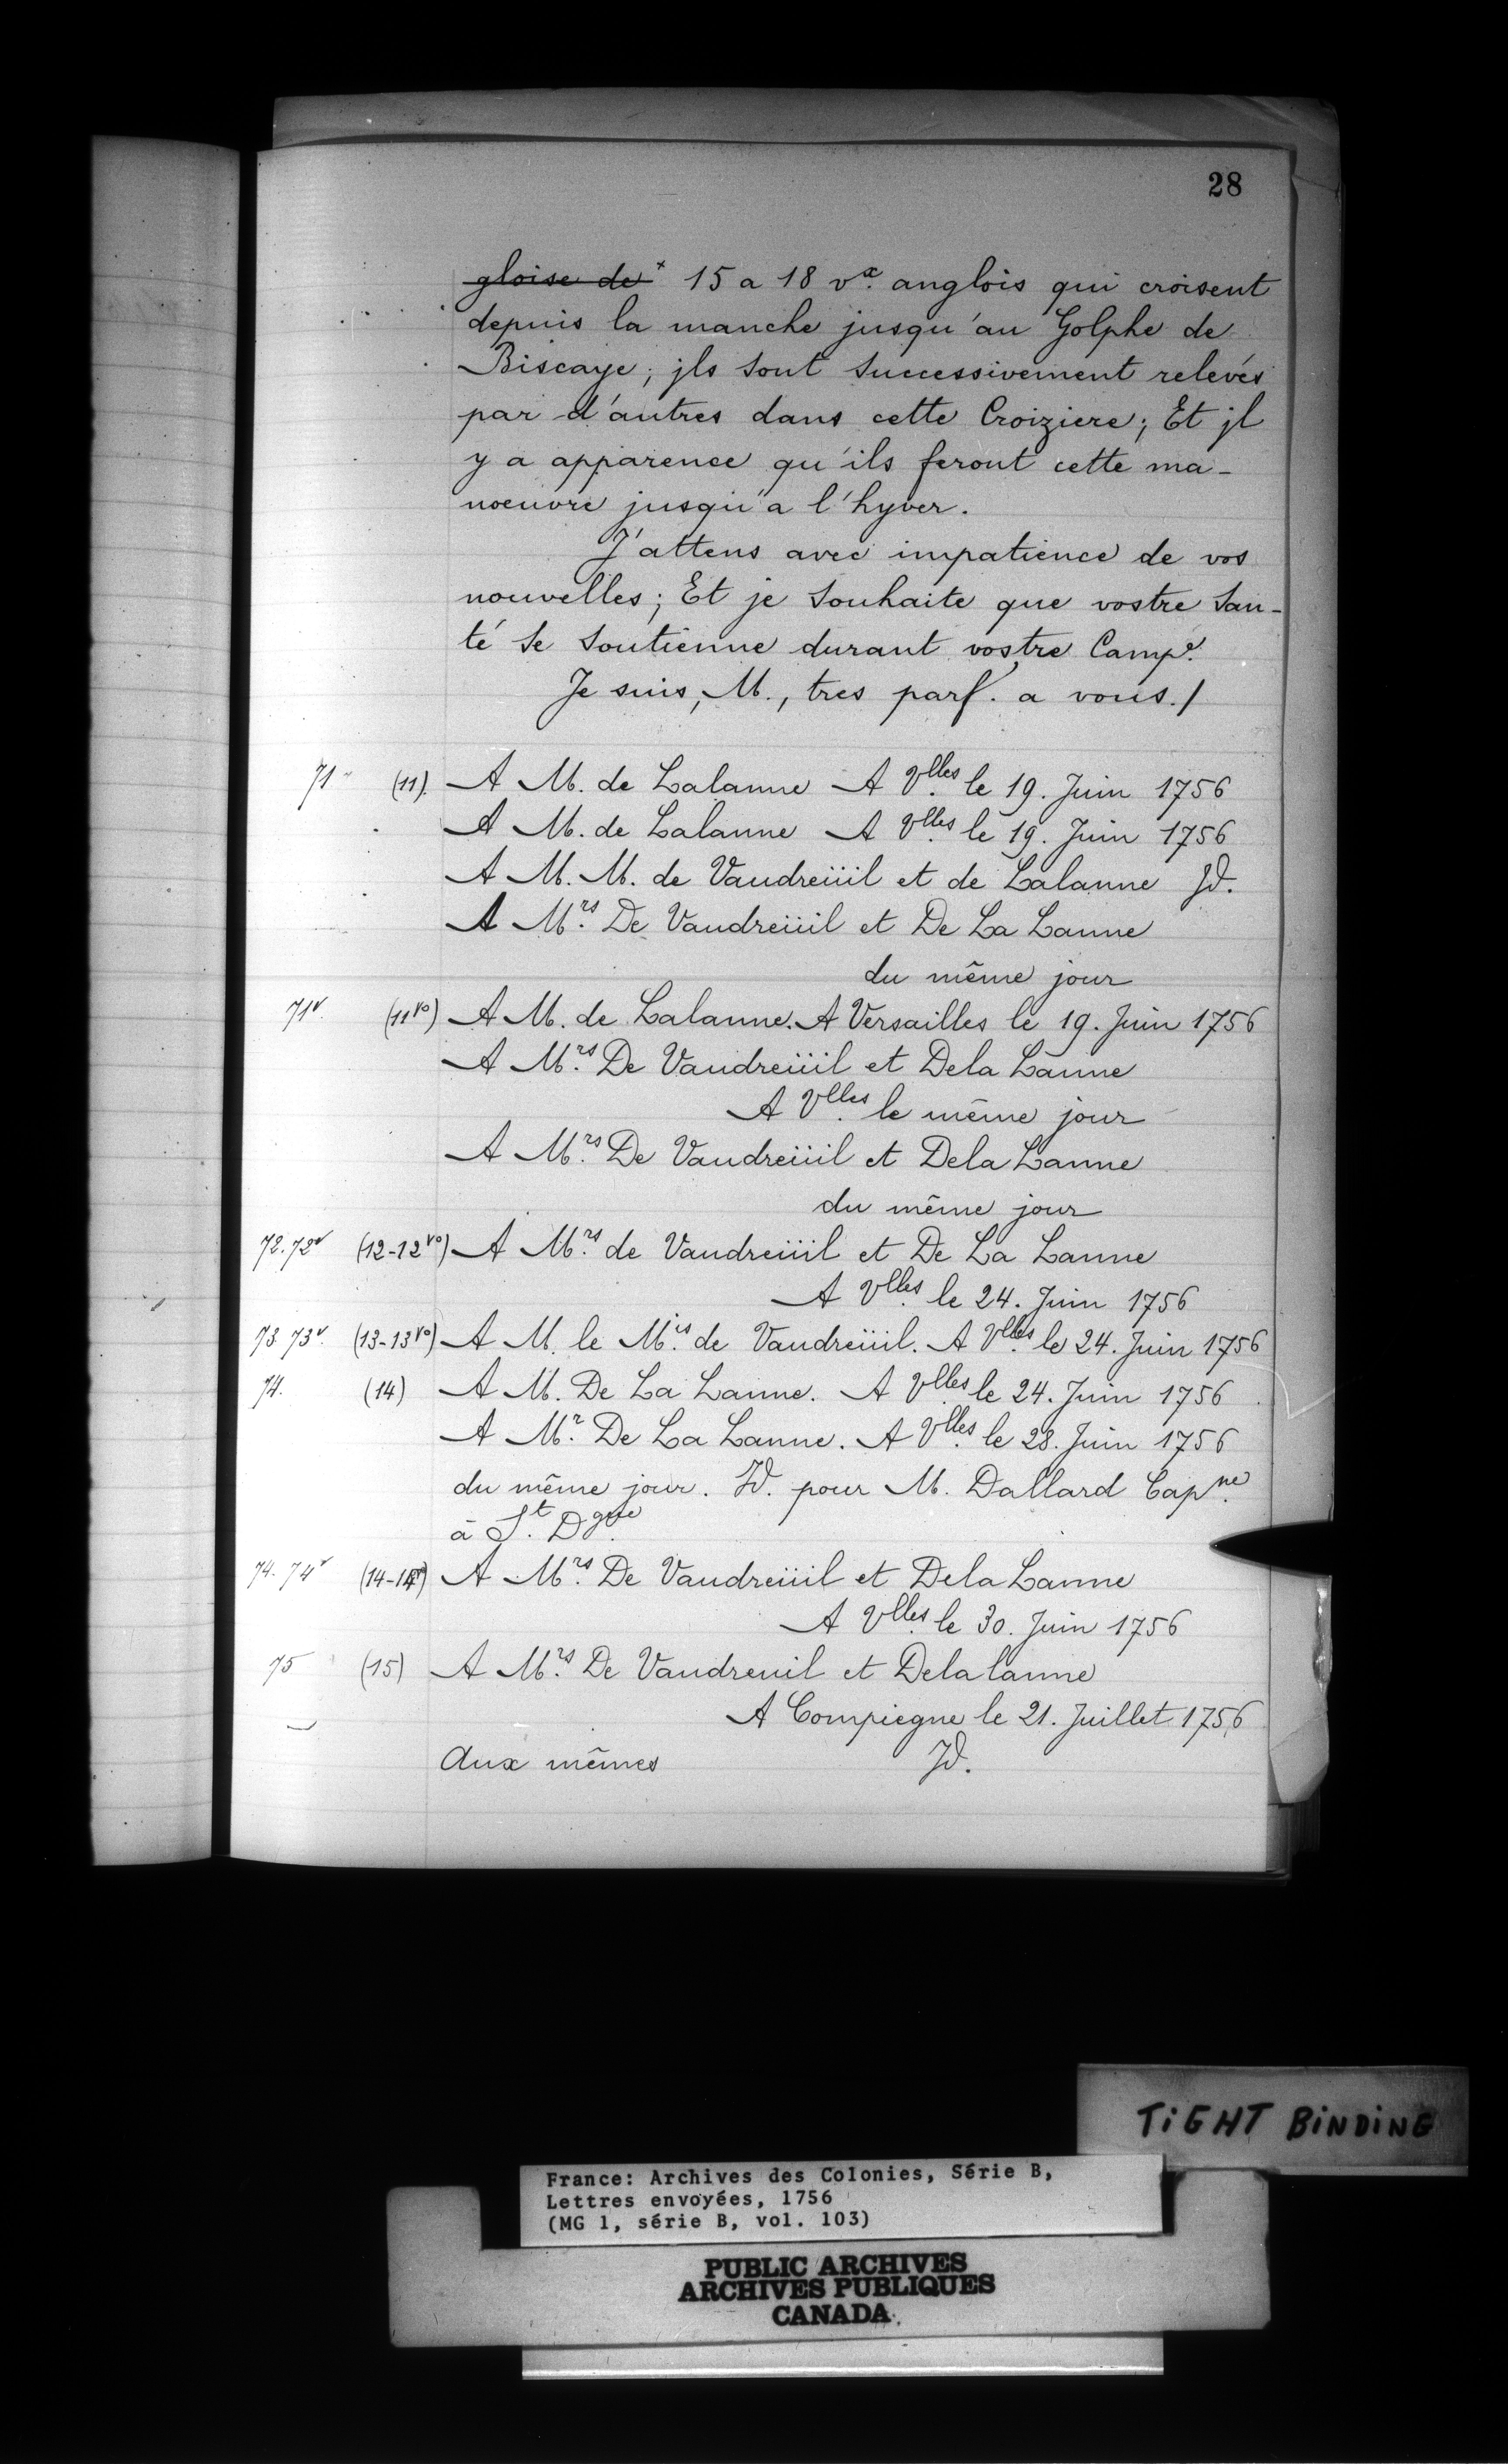 28
gloise de + 15 a 18 vx. anglois qui croisent
depuis la manche jusqu'au Golphe de
Biscaye; jls sont successivement relevés
par d'autres dans cette Croiziere; Et jl
y a apparence qu'ils feront cette ma-
noeuvre jusqu'a l'hyver.
J'attens avec impatience de vos
nouvelles; Et je souhaite que vostre san-
té se soutienne durant vostre Campe.
Je suis, M., tres parf. a vous./
71 (11). A M. de Lalanne A Vlles. le 19. Juin 1756
A M. de Lalanne A Vlles. le 19. Juin 1756
A M. M. de Vaudreüil et de Lalanne Jd.
A Mrs. De Vaudreüil et De La Lanne
du même jour
71v. (11vo) A M. de Lalanne. A Versailles le 19. Juin 1756
A Mrs. De Vaudreüil et Dela Lanne
A Vlles. le même jour
A Mrs. De Vaudreüil et Dela Lanne
du même jour
72. 72v (12-12vo) A Mrs. de Vaudreüil et De La Lanne
A Vlles. le 24. Juin 1756
73 73v. (13-13vo) A M. le Mis. de Vaudreüil. A Vlles. le 24. Juin 1756
74. (14) A M. De La Lanne. A Vlles. le 24. Juin 1756
A Mr. De La Lanne. A Vlles. le 28. Juin 1756
du même jour. Jd. pour M. Dallard Capne.
à St. Dgue.
74. 74v (14-14vo) A Mrs. De Vaudreüil et Dela Lanne
A Vlles. le 30. Juin 1756
75 (15) A Mrs. De Vaudreuil et Delalanne
A Compiegne le 21. Juillet 1756
Aux mêmes Jd.
TiGHT BiNDiNG
France: Archives des Colonies, Série B,
Lettres envoyées, 1756
(MG 1, série B, vol. 103)
PUBLIC ARCHIVES
ARCHIVES PUBLIQUES
CANADA